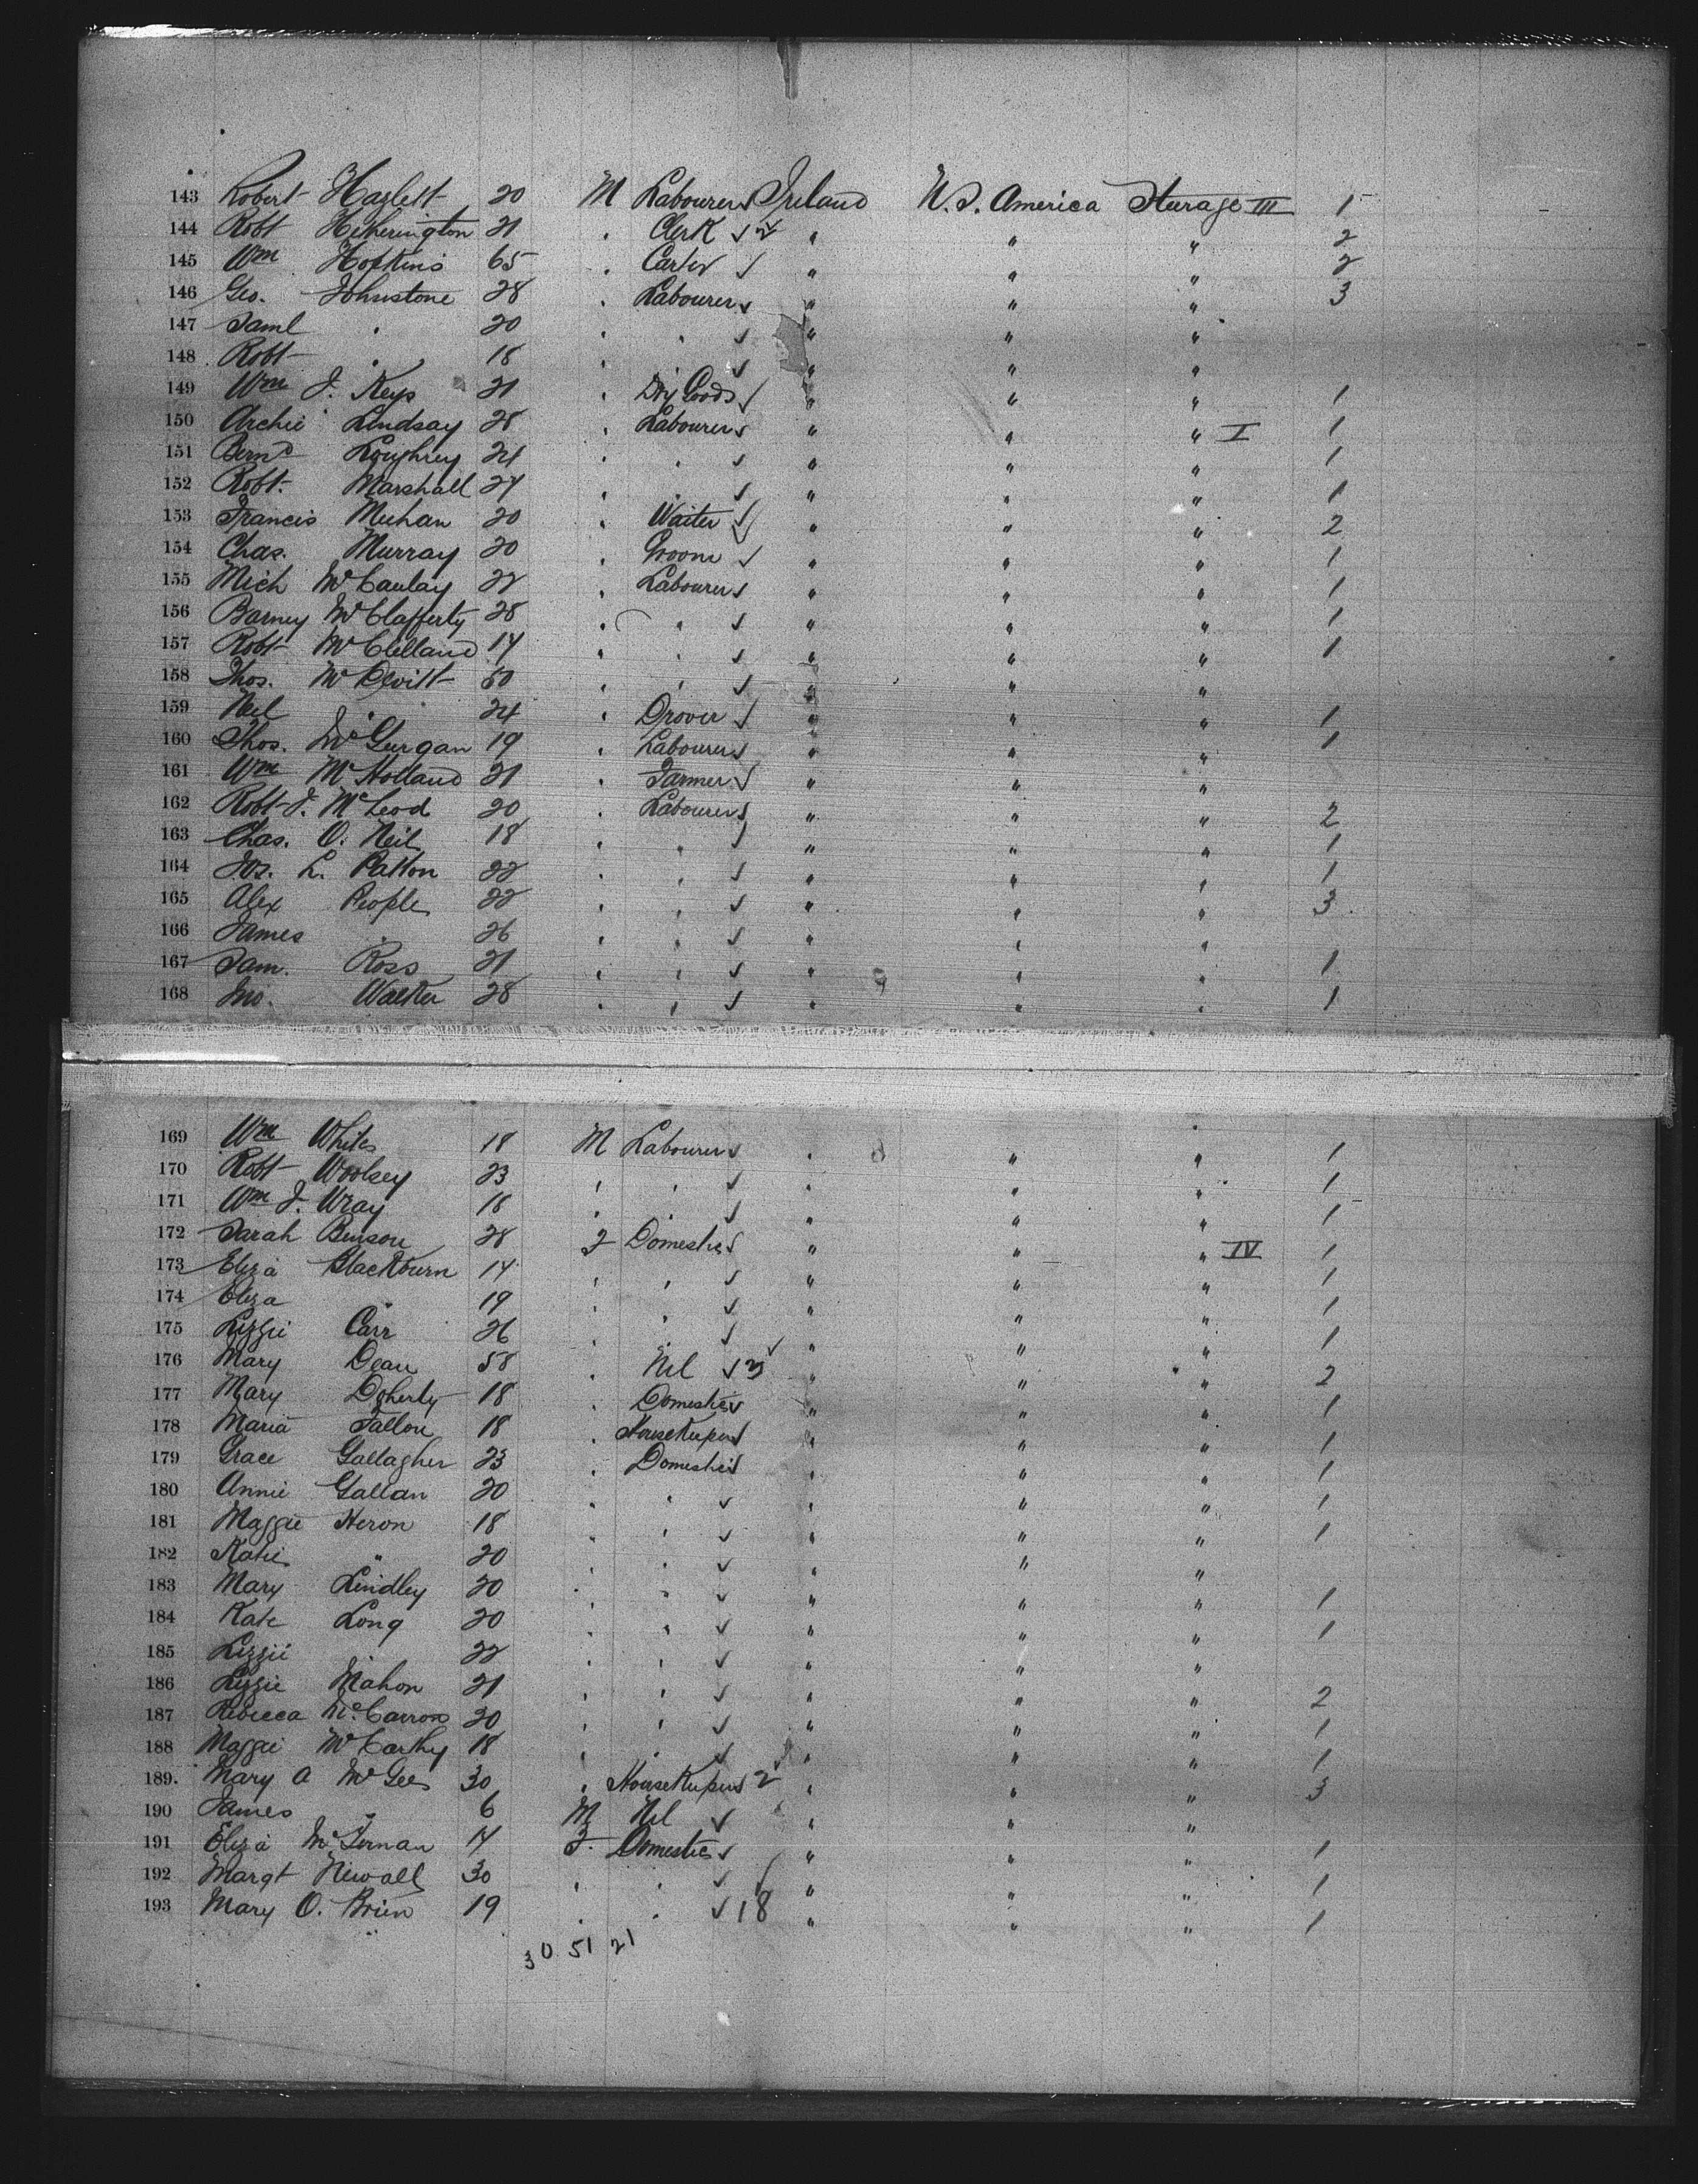 143 Robert Hazlett 20 M Labourer Ireland U.S. America Sturage III 1
144 Robt Hetherington 21 . Clerk 2 " " " 2
145 Wm Hopkins 65 . Carter " " " 2
146 Geo. Johnstone 28 . Labourer " " " 3
147 Saml . 20 . . " " "
148 Robt . 18 . . " " "
149 Wm J. Keys 21 . Dry Goods " " " 1
150 Archie Lindsay 28 . Labourer " " " I 1
151 Bernd Loughrey 24 . . " " " 1
152 Robt. Marshall 24 . . " " " 1
153 Francis Meehan 20 . Waiter " " " 2
154 Chas. Murray 20 . Groom " " " 1
155 Mich McCaulay 22 . Labourer " " " 1
156 Barney McClafferty 28 . . " " " 1
157 Robt McClelland 14 . . " " " 1
158 Thos. McDevitt 50 . . " " "
159 Neil . 24 . Drover " " " 1
160 Thos. McGurgan 19 . Labourer " " " 1
161 Wm McHolland 21 . Farmer " " "
162 Robt J. McLeod 20 . Labourer " " " 2
163 Chas. O. Neil 18 . . " " " 1
164 Jos. L. Patton 22 . . " " " 1
165 Alex Peoples 22 . . " " " 3
166 James . 26 . . " " "
167 Sam. Ross 21 . . " " " 1
168 Jno. Walker 28 . . " " " 1
169 Wm White 18 M Labourer . " " 1
170 Robt Woolsey 23 . . . " " 1
171 Wm J. Wray 18 . . " " " 1
172 Sarah Benson 28 F Domestic " " " IV 1
173 Eliza Blackburn 14 . . " " " 1
174 Eliza " 19 . . " " " 1
175 Lizzie Carr 26 . . " " " 1
176 Mary Dean 58 . Nil 3 " " " 2
177 Mary Doherty 18 . Domestic " " " 1
178 Maria Fallon 18 . Housekeeper " " " 1
179 Grace Gallagher 23 . Domestic " " " 1
180 Annie Gallan 20 . . " " " 1
181 Maggie Heron 18 . . " " " 1
182 Katie " 20 . . " " "
183 Mary Lindley 20 . . " " " 1
184 Kate Long 20 . . " " " 1
185 Lizzie . 22 . . " " "
186 Lizzie Mahon 21 . . " " " 2
187 Rebecca McCarron 20 . . " " " 1
188 Maggie McCarthy 18 . . " " " 1
189. Mary A McGee 30 . Housekeeper 2 " " " 3
190 James " 6 M Nil " " "
191 Eliza McTernan 14 F. Domestic " " " 1
192 Margt Newall 30 . . " " " 1
193 Mary O. Brien 19 . . 18 " " " 1
30 51 21